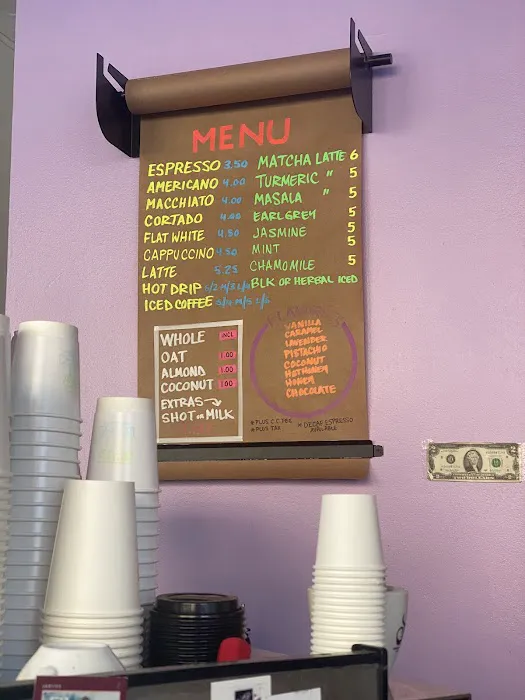 MENU
ESPRESSO 3.50
AMERICANO 4.00
MACCHIATO 4.00
CORTADO 4.00
FLAT WHITE 4.50
CAPPUCCINO 4.50
LATTE 5.25
HOT DRIP
ICED COFFEE
MATCHA LATTE 6
TURMERIC " 5
MASALA " 5
EARL GREY 5
JASMINE 5
MINT 5
CHAMOMILE 5
BLK OR HERBAL ICED
WHOLE INCL
OAT 1.00
ALMOND 1.00
COCONUT 1.00
EXTRAS→
SHOT OR MILK
FLAVORS
VANILLA
CARAMEL
LAVENDER
PISTACHIO
COCONUT
HOT HONEY
HONEY
CHOCOLATE
* PLUS C.C. FEE
* PLUS TAX
* DECAF ESPRESSO
AVAILABLE
TWO DOLLARS